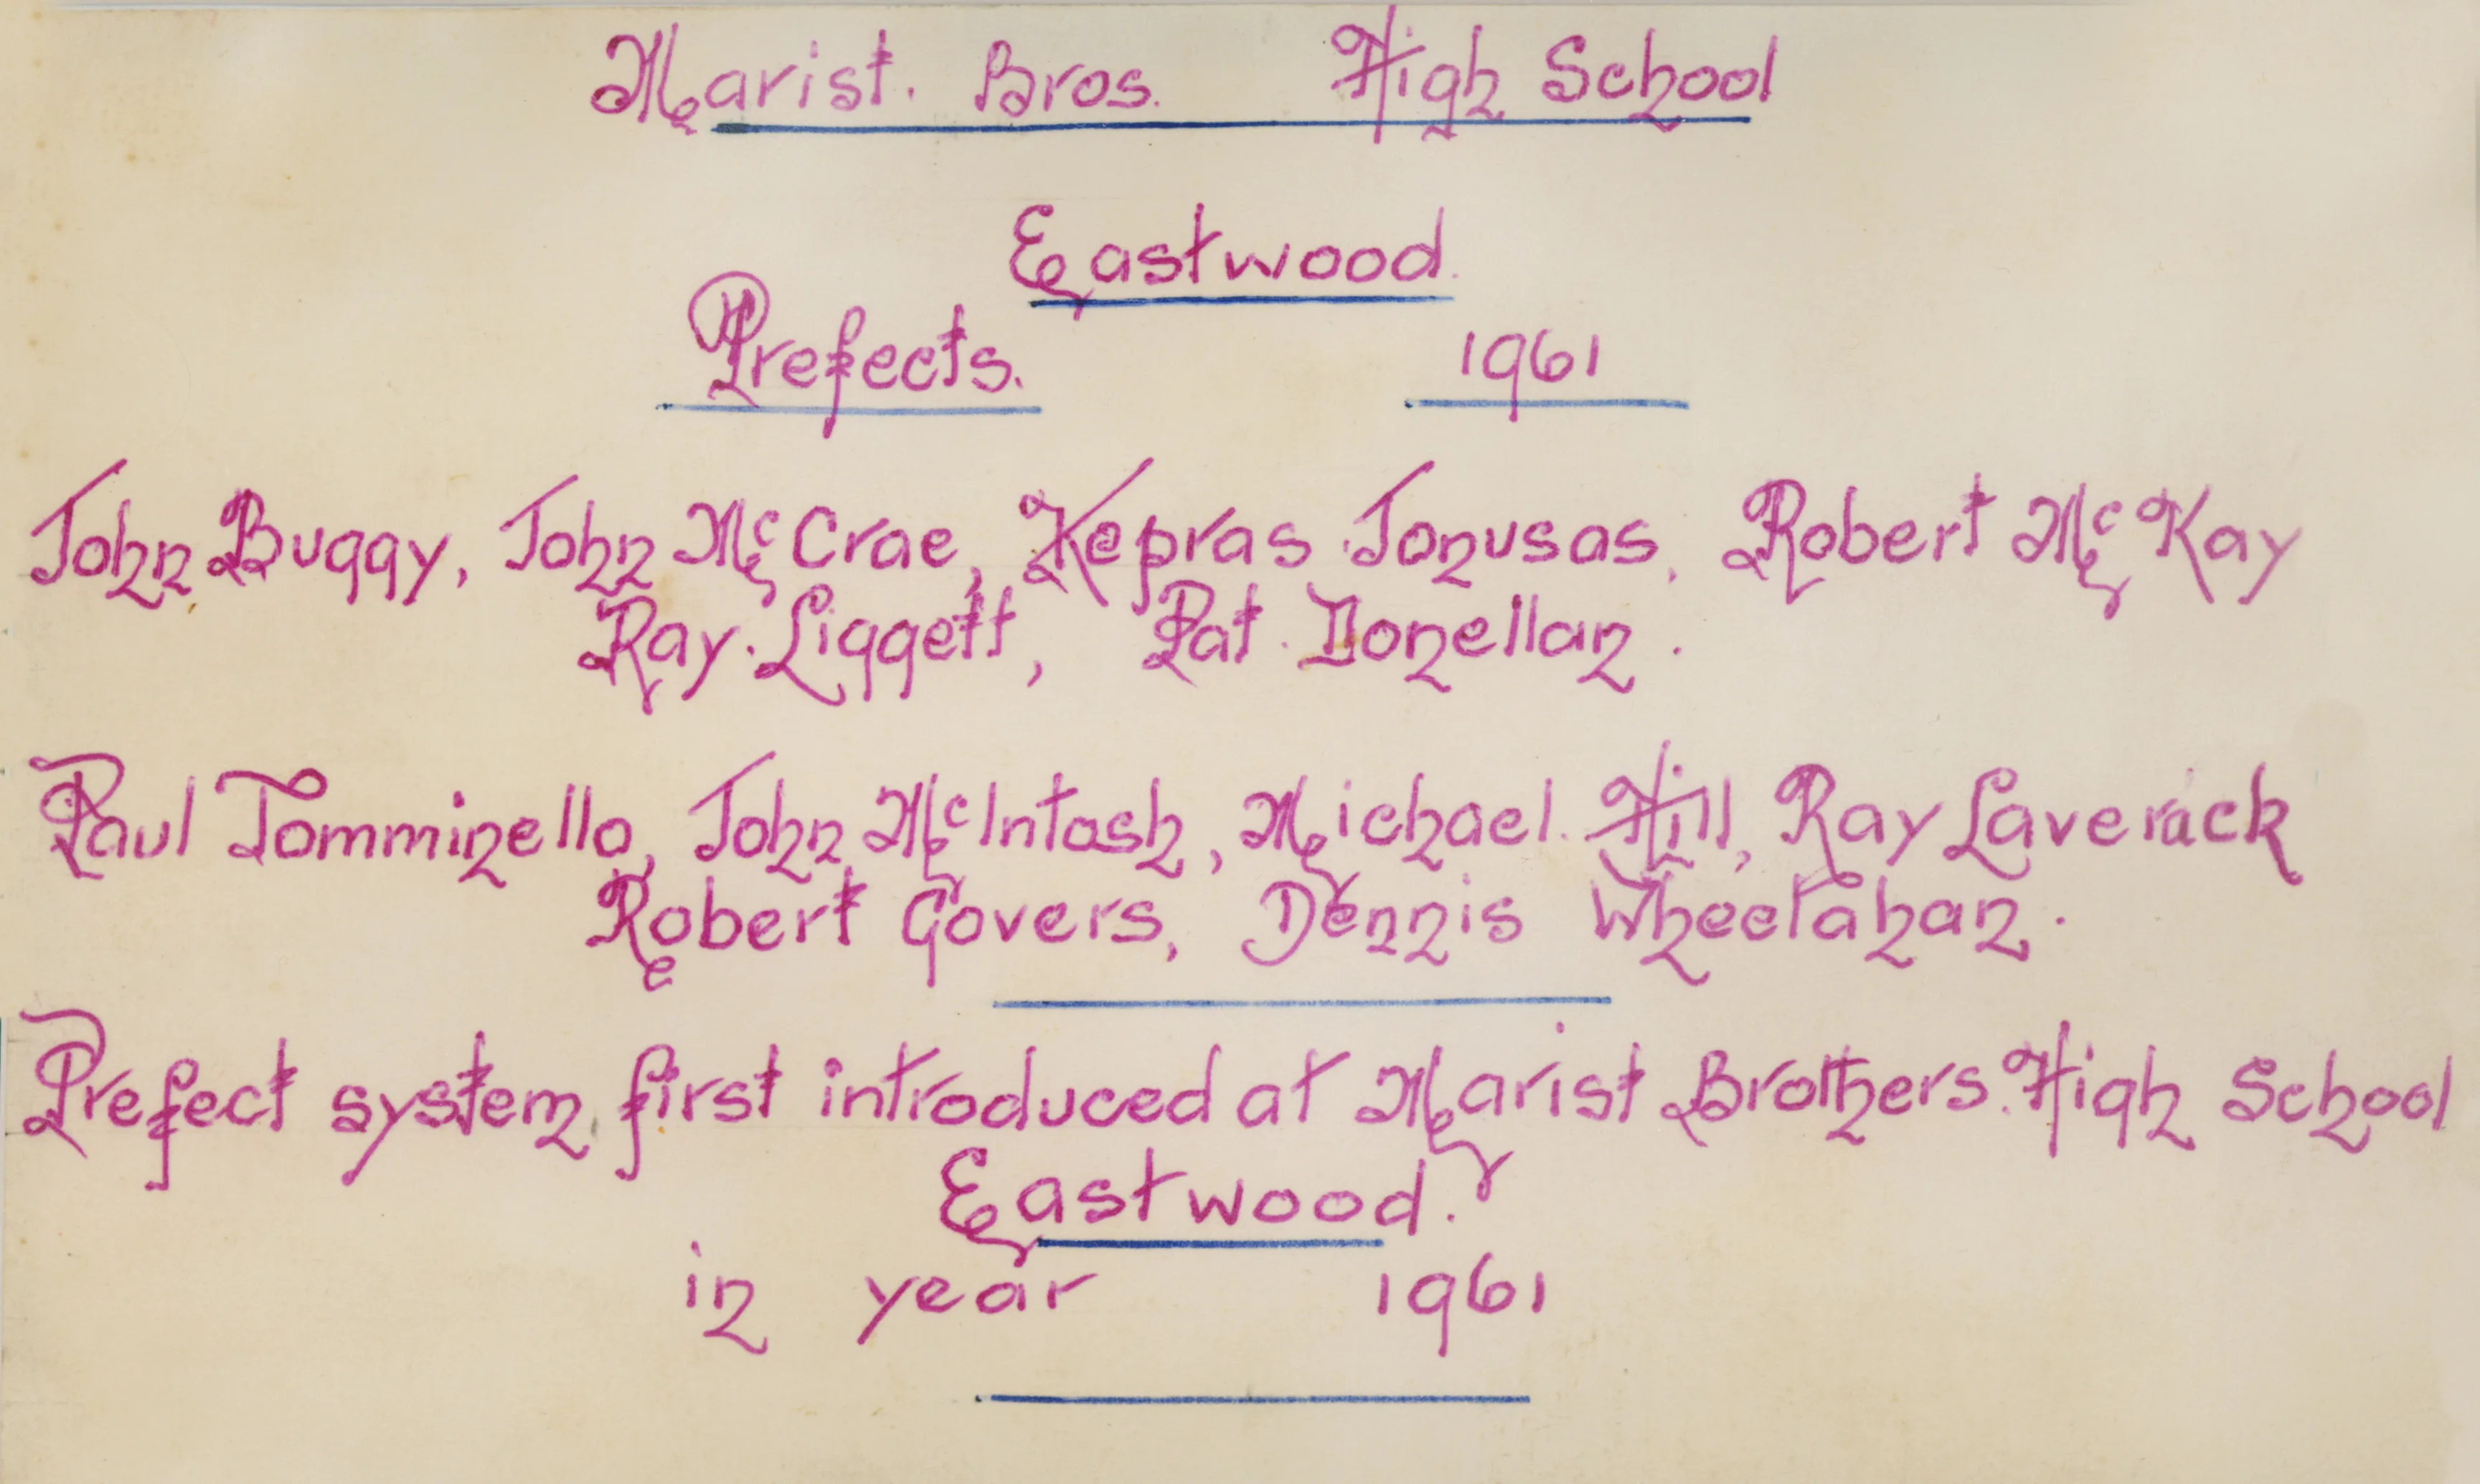 Marist. Bros. High School
Eastwood.
Prefects. 1961
John Buggy, John McCrae, Kepras Jonusas, Robert McKay
Ray. Liggett, Pat. Donellan.
Paul Tomminello, John McIntosh, Michael. Hill, Ray Laverack
Robert Govers, Dennis Wheelahan.
Prefect system first introduced at Marist Brothers. High School
Eastwood.
in year 1961